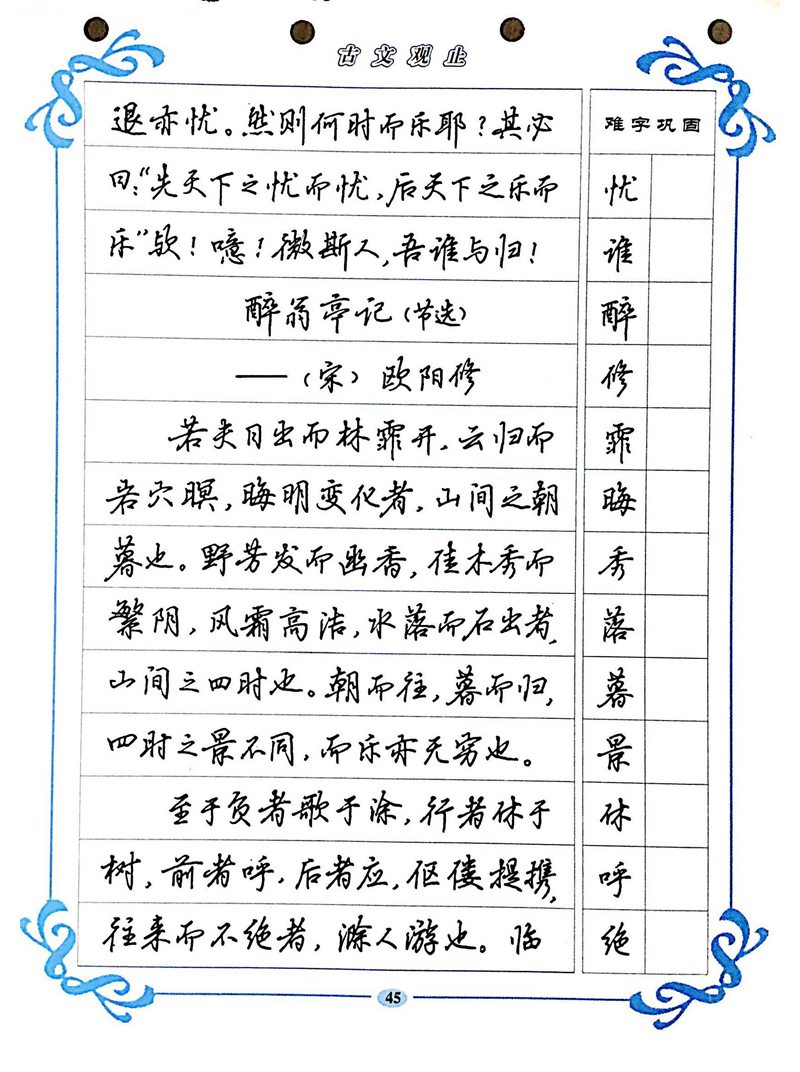 古文观止
退亦忧。然则何时而乐耶？其必
曰：“先天下之忧而忧，后天下之乐而
乐”欤！噫！微斯人，吾谁与归！
醉翁亭记（节选）
——（宋）欧阳修
若夫日出而林霏开，云归而
岩穴暝，晦明变化者，山间之朝
暮也。野芳发而幽香，佳木秀而
繁阴，风霜高洁，水落而石出者，
山间之四时也。朝而往，暮而归，
四时之景不同，而乐亦无穷也。
至于负者歌于涂，行者休于
树，前者呼，后者应，伛偻提携，
往来而不绝者，滁人游也。临
难字巩固
忧
谁
醉
修
霏
晦
秀
落
暮
景
休
呼
绝
45